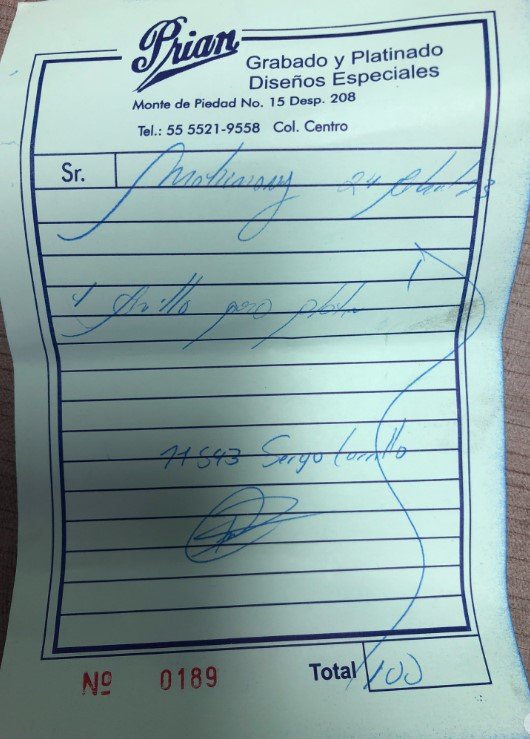 Prian
Grabado y Platinado
Diseños Especiales
Monte de Piedad No. 15 Desp. 208
Tel.: 55 5521-9558 Col. Centro
Sr. 24
1 Anillo para
11543 Sergio
Nº 0189 Total 100